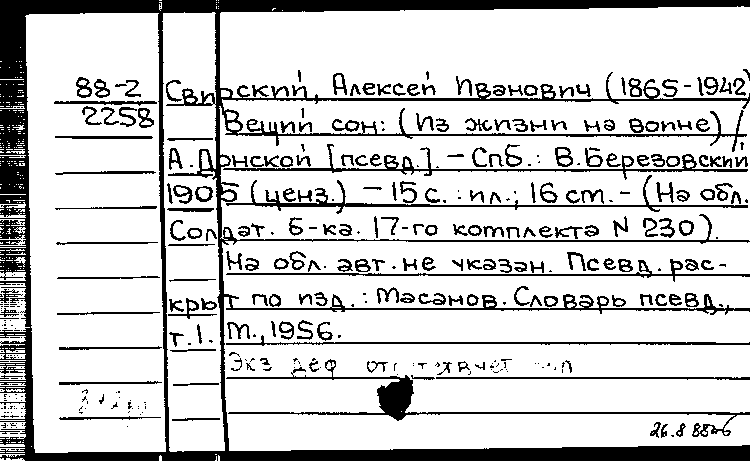 88-2 Свирский, Алексей Иванович (1865-1942)
2258 Вещий сон: (Из жизни на войне) /
А.Донской [псевд.]. - Спб.: В.Березовский
1905 (ценз.) - 15 с. : ил.; 16 см. - (На обл.
Солдат. б-ка. 17-го комплекта N 230).
На обл. авт. не указан. Псевд. рас-
крыт по изд.: Масанов. Словарь псевд.,
т.1. М., 1956.
Экз деф
26.8